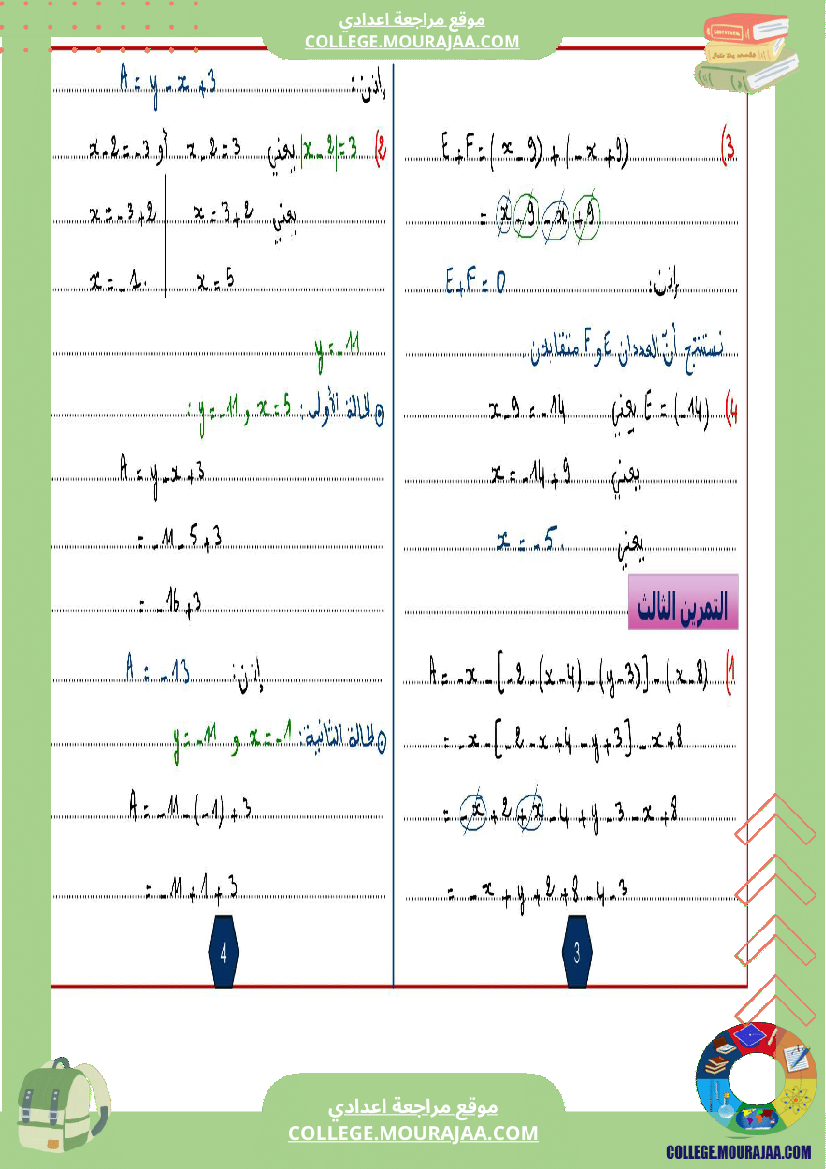 موقع مراجعة اعدادي
COLLEGE.MOURAJAA.COM
3) E+F=(x-9)+(-x+9)
= x-9-x+9
إذن: E+F=0
نستنتج أنّ العددان E و F متقابلان.
4) E=(-14) يعني x-9=-14
يعني x=-14+9
يعني x=-5.
التمرين الثالث
1) A=-x-[-2-(x-4)-(y-3)]-(x-8)
= -x-[-2-x+4-y+3]-x+8
= -x+2+x-4+y-3-x+8
= -x+y+2+8-4-3
3
إذن: A=y-x+3
2) |x-2|=3 يعني x-2=3 أو x-2=-3
يعني x=3+2 | x=-3+2
x=5 | x=-1.
y=-11
الحالة الأولى: x=5 و y=-11:
A=y-x+3
= -11-5+3
= -16+3
إذن: A=-13
الحالة الثانية: x=-1 و y=-11
A=-11-(-1)+3
= -11+1+3
4
موقع مراجعة اعدادي
COLLEGE.MOURAJAA.COM
COLLEGE.MOURAJAA.COM